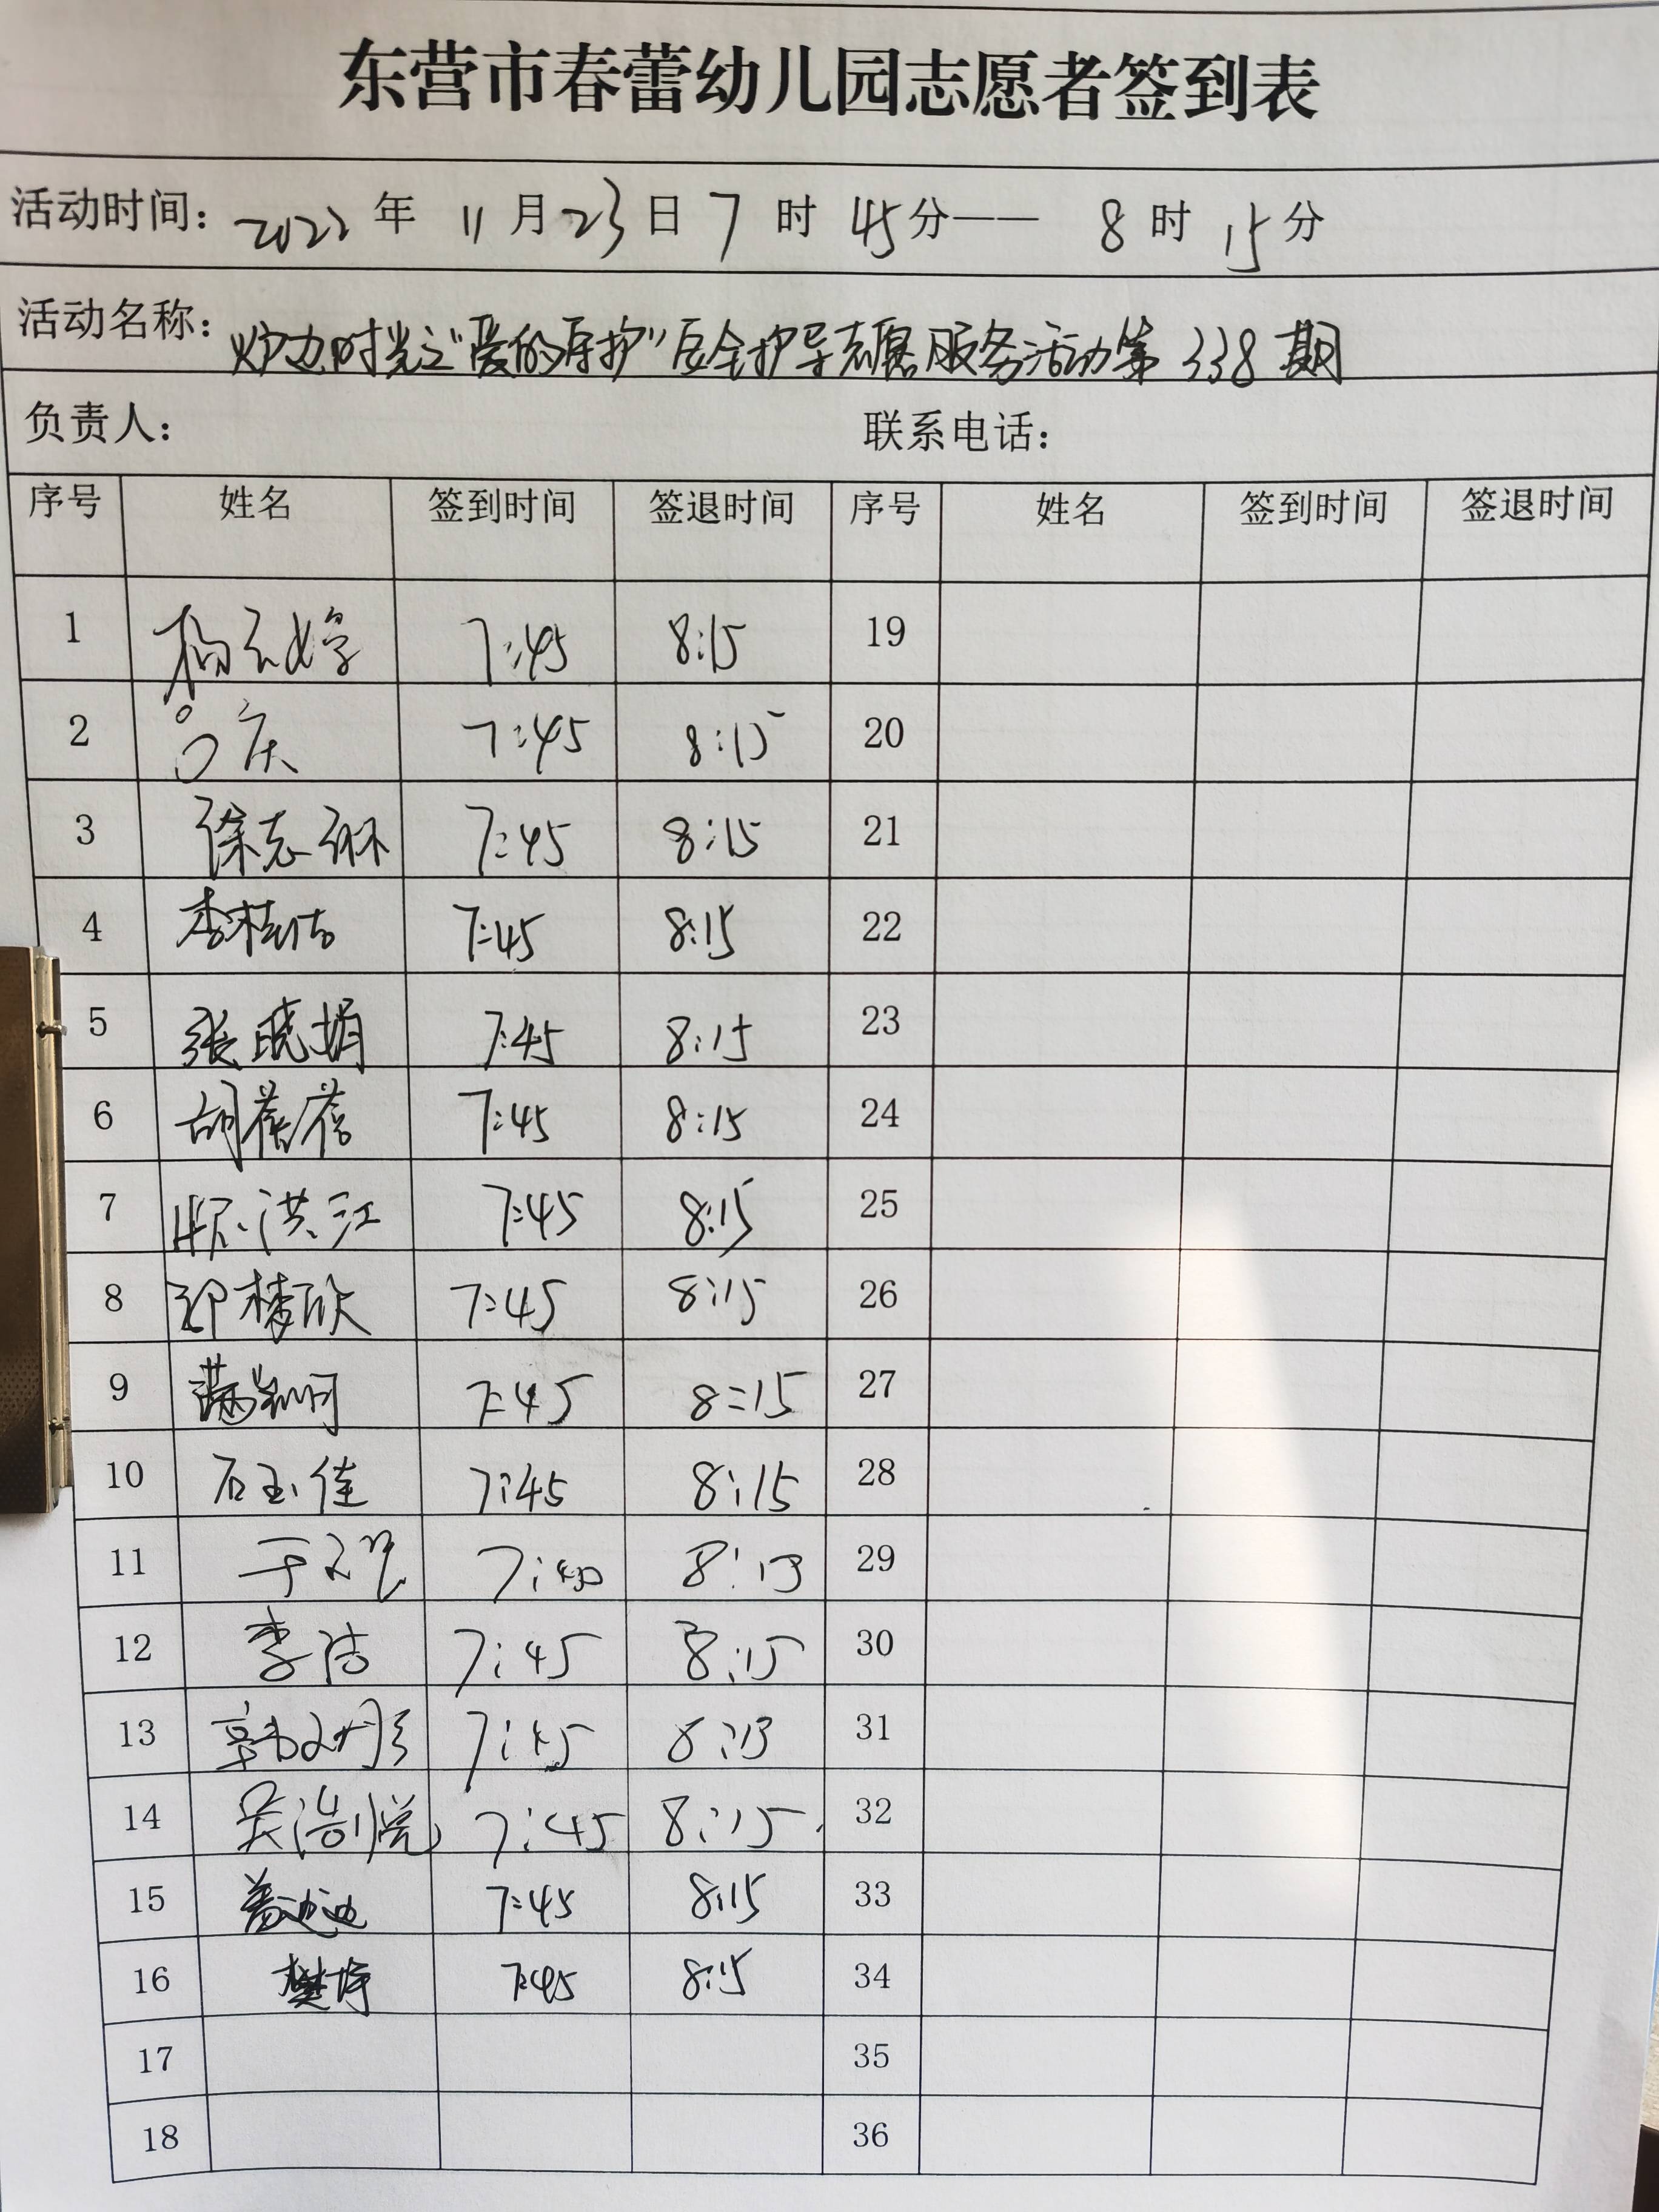 东营市春蕾幼儿园志愿者签到表
活动时间: 2022 年 11 月 23 日 7 时 45 分—— 8 时 15 分
活动名称: 炉边时光之"爱的守护"安全护导志愿服务活动第 338 期
负责人: 联系电话:
序号 姓名 签到时间 签退时间 序号 姓名 签到时间 签退时间
1 杨云婷 7:45 8:15 19
2 庆 7:45 8:15 20
3 徐志琳 7:45 8:15 21
4 李桂洁 7:45 8:15 22
5 张晓娟 7:45 8:15 23
6 胡蓓蓓 7:45 8:15 24
7 洪江 7:45 8:15 25
8 邵梦欣 7:45 8:15 26
9 7:45 8:15 27
10 石玉佳 7:45 8:15 28
11 于文 7:40 8:15 29
12 李洁 7:45 8:15 30
13 韩文彤 7:45 8:15 31
14 吴浩悦 7:45 8:15 32
15 盖迪迪 7:45 8:15 33
16 樊婷 7:45 8:15 34
17 35
18 36